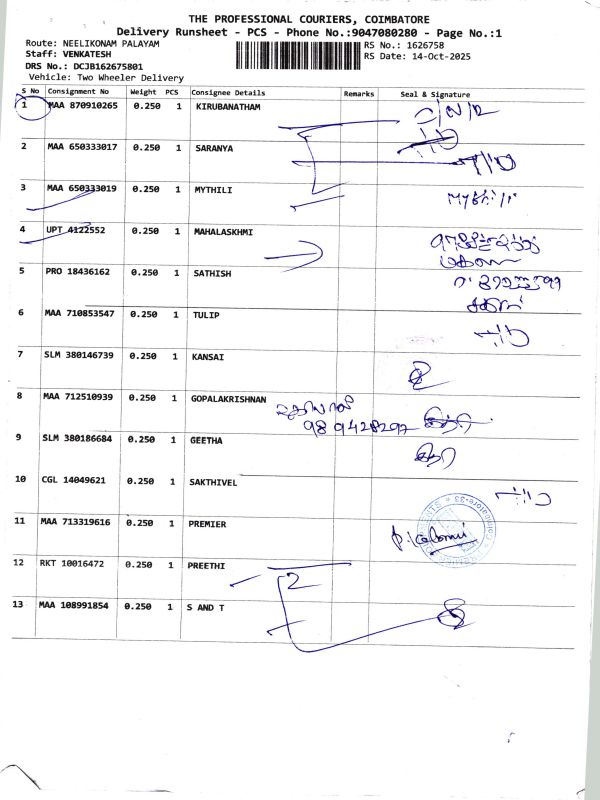 THE PROFESSIONAL COURIERS, COIMBATORE
Delivery Runsheet - PCS - Phone No.:9047080280 - Page No.:1
Route: NEELIKONAM PALAYAM
RS No.: 1626758
Staff: VENKATESH
RS Date: 14-Oct-2025
DRS No.: DCJB162675801
Vehicle: Two Wheeler Delivery
S No Consignment No Weight PCS Consignee Details Remarks Seal & Signature
1 MAA 870910265 0.250 1 KIRUBANATHAM
2 MAA 650333017 0.250 1 SARANYA
3 MAA 650333019 0.250 1 MYTHILI
4 UPT 4122552 0.250 1 MAHALASKHMI
5 PRO 18436162 0.250 1 SATHISH
6 MAA 710853547 0.250 1 TULIP
7 SLM 380146739 0.250 1 KANSAI
8 MAA 712510939 0.250 1 GOPALAKRISHNAN
9894428297
9 SLM 380186684 0.250 1 GEETHA
10 CGL 14049621 0.250 1 SAKTHIVEL
11 MAA 713319616 0.250 1 PREMIER
12 RKT 10016472 0.250 1 PREETHI
2
13 MAA 108991854 0.250 1 S AND T